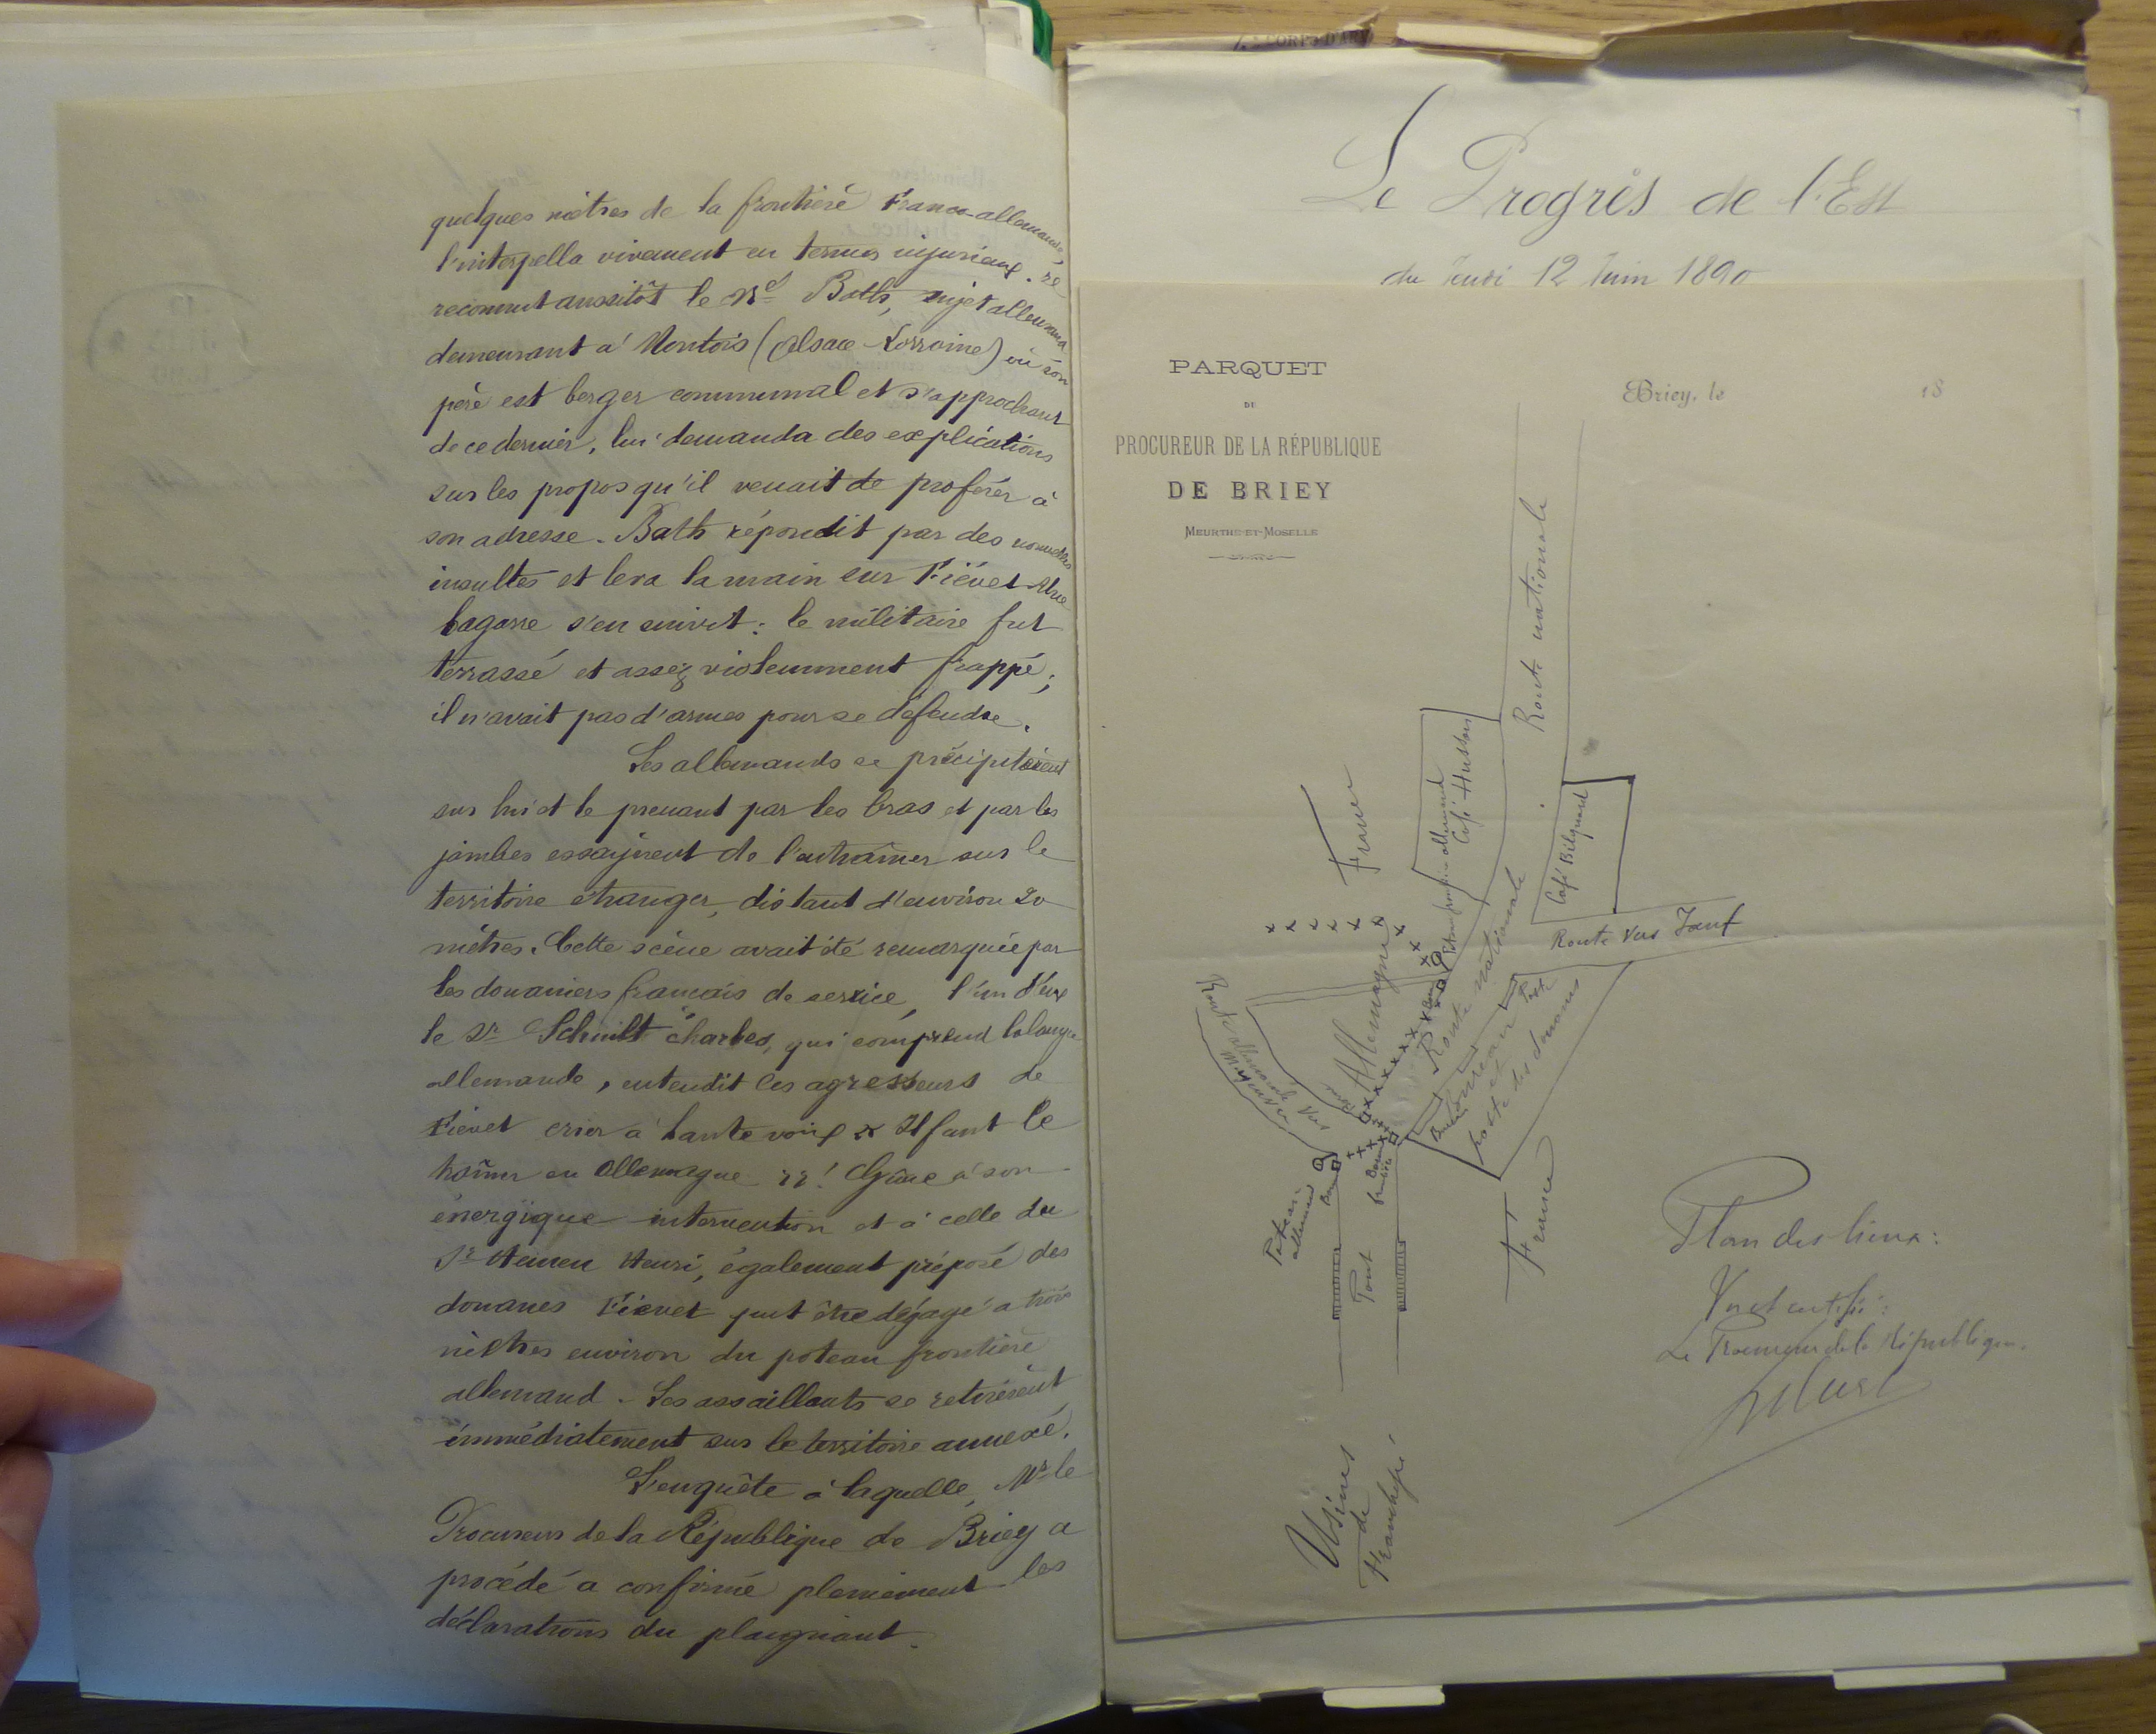 quelques mètres de la frontière Franco-allemande,
l'interpella vivement en termes injurieux. Il
reconnut aussitôt le Né Bath, sujet allemand
demeurant à Montois (Alsace-Lorraine) où son
père est berger communal et s'approchant
de ce dernier, lui demanda des explications
sur les propos qu'il venait de proférer à
son adresse. Bath répondit par des nouvelles
insultes et leva la main sur Fiévet. Une
bagarre s'en suivit : le militaire fut
terrassé et assez violemment frappé ;
il n'avait pas d'armes pour se défendre.
Les allemands se précipitèrent
sur lui et le prenant par les bras et par les
jambes essayèrent de l'entraîner sur le
territoire étranger, distant d'environ 20
mètres. Cette scène avait été remarquée par
les douaniers français de service, l'un d'eux
le Sr Schmitt Charles, qui comprend la langue
allemande, entendit les agresseurs de
Fiévet crier à haute voix « Il faut le
traîner en Allemagne » ! Grâce à son
énergique intervention et à celle du
Sr Henri, également préposé des
douanes Fiévet put être dégagé à trois
mètres environ du poteau frontière
allemand - Les assaillants se retirèrent
immédiatement sur le territoire annexé.
L'enquête à laquelle Mr le
Procureur de la République de Briey a
procédé a confirmé pleinement les
déclarations du plaignant.
7e CORPS D'AR
Le Progrès de l'Est
du Jeudi 12 Juin 1890
PARQUET
DU
PROCUREUR DE LA RÉPUBLIQUE
DE BRIEY
MEURTHE-ET-MOSELLE
Briey, le 18
Route nationale
Café Husson
allemand
Café Bélquard
France
Route vers Jœuf
Allemagne
Route nationale
Route allemande vers
Moyeuvre
Bureau
et
poste des douanes
Poteau
allemand
Borne
Borne
frontière
Pont
France
Usines
de
Franchepré
Plan des lieux :
Vu et certifié :
Le Procureur de la République.